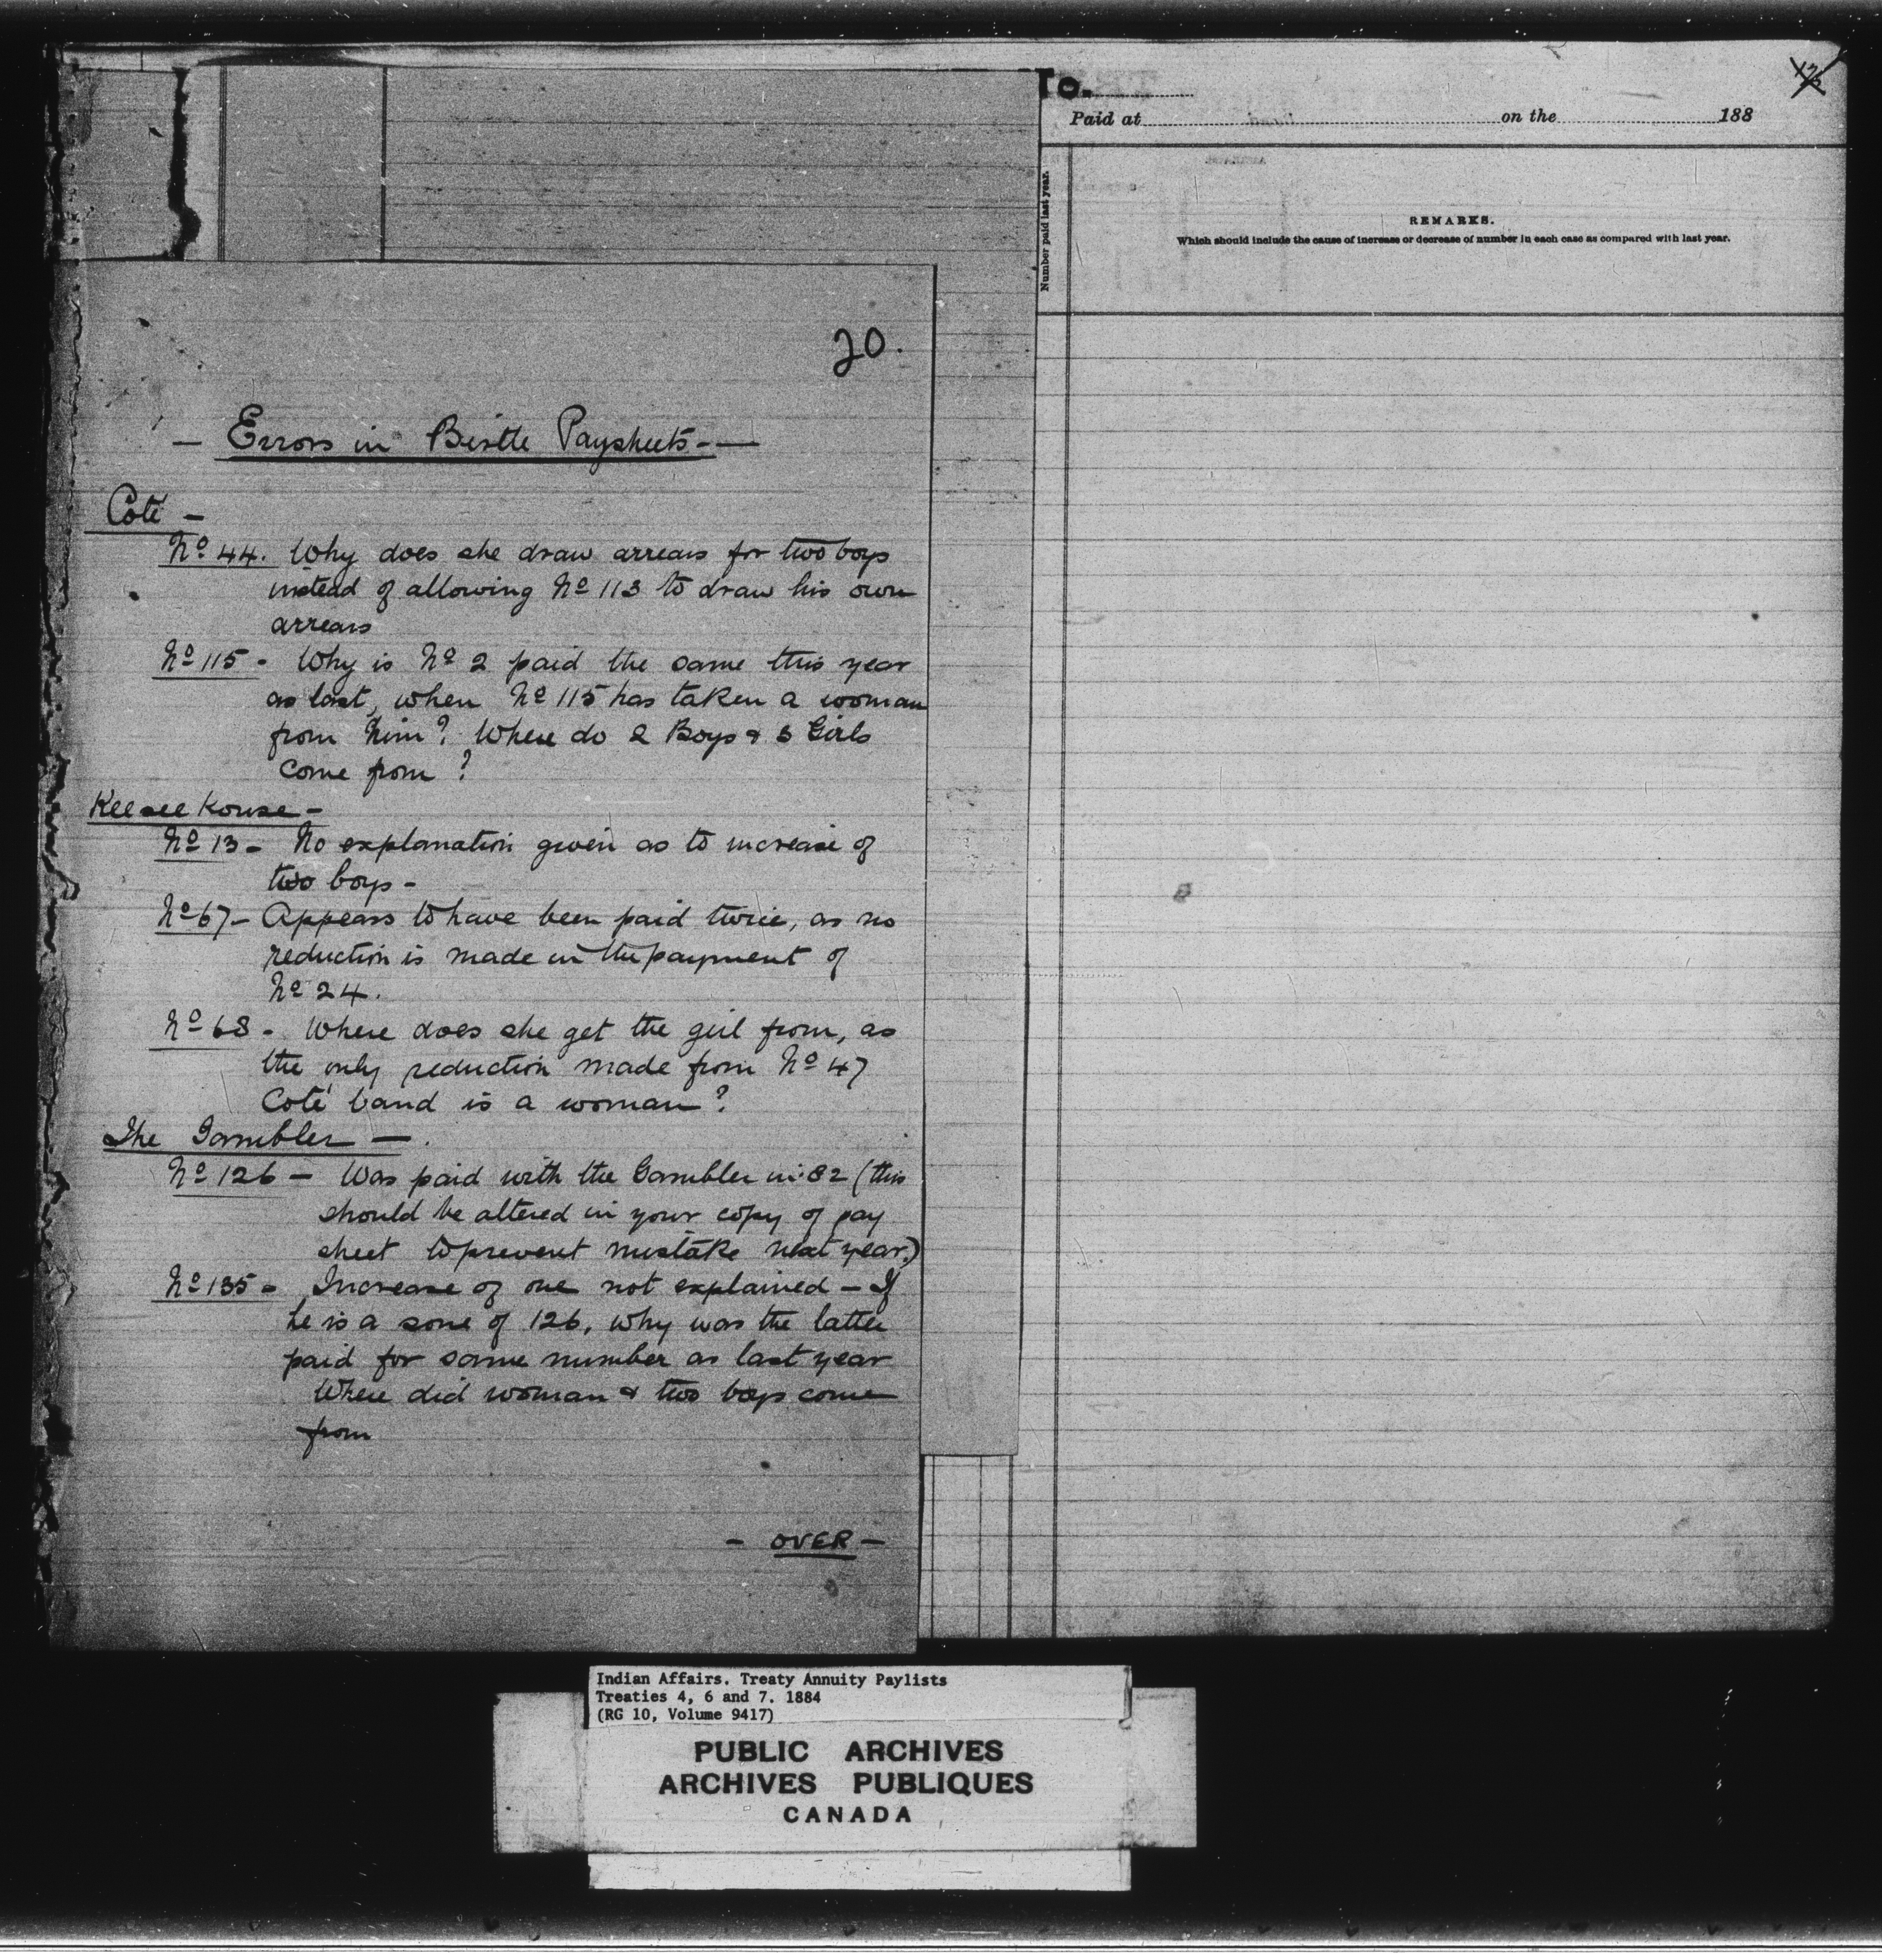 20.
- Errors in Birtle Paysheets -
Coté -
No 44. Why does she draw arrears for two boys
instead of allowing No 113 to draw his own
arrears
No 115 - Why is No 2 paid the same this year
as last, when No 115 has taken a woman
from him? Where do 2 Boys & 3 Girls
come from?
Keeseekouse -
No 13 - No explanation given as to increase of
two boys -
No 67 - Appears to have been paid twice, as no
reduction is made in the payment of
No 24.
No 68 - Where does she get the girl from, as
the only reduction made from No 47
Coté band is a woman?
The Gambler -.
No 126 - Was paid with the Gambler in 82 (this
should be altered in your copy of pay
sheet to prevent mistake next year.)
No 135 - Increase of one not explained - If
he is a sone of 126, why was the latter
paid for same number as last year
Where did woman & two boys come
from
- OVER -
To.
Paid at on the 188
Number paid last year.
REMARKS.
Which should include the cause of increase or decrease of number in each case as compared with last year.
Indian Affairs. Treaty Annuity Paylists
Treaties 4, 6 and 7. 1884
(RG 10, Volume 9417)
PUBLIC ARCHIVES
ARCHIVES PUBLIQUES
CANADA